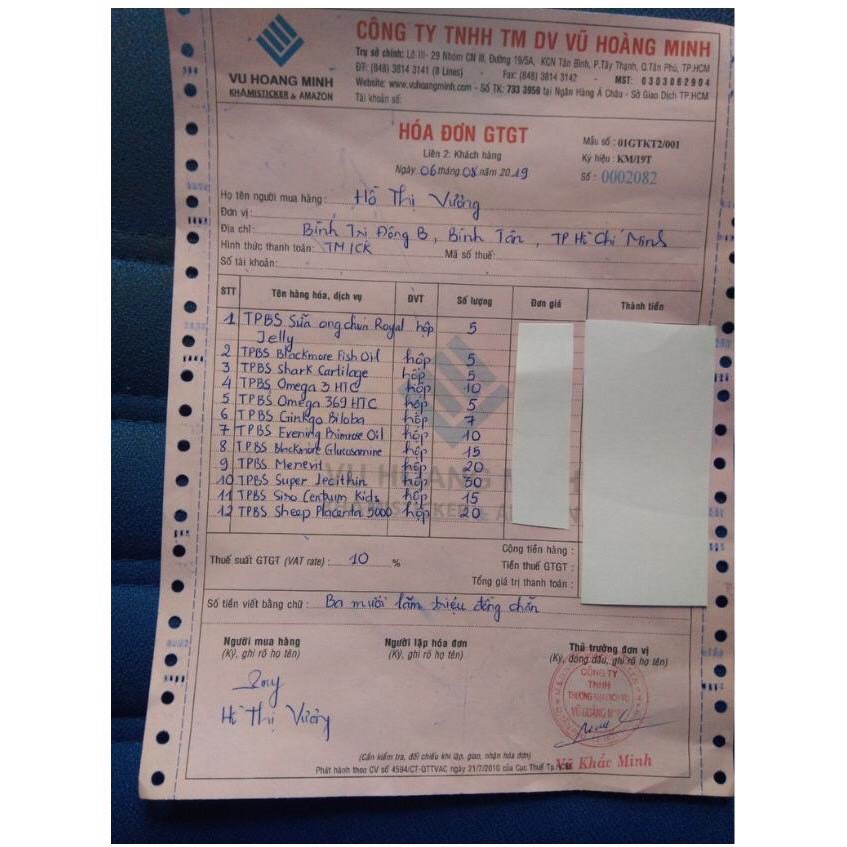 CÔNG TY TNHH TM DV VŨ HOÀNG MINH
Trụ sở chính: Lô III- 29 Nhóm CN III, Đường 19/5A, KCN Tân Bình, P.Tây Thạnh, Q.Tân Phú, TP.HCM
ĐT: (848) 3814 3141 (8 Lines) - Fax: (848) 3814 3142 - MST: 0303062904
Website: www.vuhoangminh.com - Số TK: 733 3959 tại Ngân Hàng Á Châu - Sở Giao Dịch TP.HCM
Tài khoản số:
VU HOANG MINH
KHAMISTICKER & AMAZON
HÓA ĐƠN GTGT
Liên 2: Khách hàng
Ngày 06 tháng 08 năm 2019
Mẫu số : 01GTKT2/001
Ký hiệu : KM/19T
Số : 0002082
Họ tên người mua hàng : Hồ Thị Vưởng
Đơn vị :
Địa chỉ: Bình Trị Đông B, Bình Tân, TP Hồ Chí Minh
Hình thức thanh toán: TM/CK Mã số thuế:
Số tài khoản:
STT Tên hàng hóa, dịch vụ ĐVT Số lượng Đơn giá Thành tiền
1 TPBS Sữa ong chúa Royal Jelly hộp 5
2 TPBS Blackmore Fish Oil hộp 5
3 TPBS Shark Cartilage hộp 5
4 TPBS Omega 3 HTC hộp 10
5 TPBS Omega 369 HTC hộp 5
6 TPBS Ginkgo Biloba hộp 7
7 TPBS Evening Primrose Oil hộp 10
8 TPBS Blackmore Glucosamine hộp 15
9 TPBS Menevit hộp 20
10 TPBS Super Lecithin hộp 30
11 TPBS Sino Centum Kids hộp 15
12 TPBS Sheep Placenta 5000 hộp 20
Cộng tiền hàng :
Thuế suất GTGT (VAT rate) : 10 % Tiền thuế GTGT :
Tổng giá trị thanh toán :
Số tiền viết bằng chữ : Ba mươi lăm triệu đồng chẵn
Người mua hàng Người lập hóa đơn Thủ trưởng đơn vị
(Ký, ghi rõ họ tên) (Ký, ghi rõ họ tên) (Ký, đóng dấu, ghi rõ họ tên)
CÔNG TY
TNHH
THƯƠNG MẠI DỊCH VỤ
VŨ HOÀNG MINH
Hồ Thị Vưởng
Vũ Khắc Minh
(Cần kiểm tra, đối chiếu khi lập, giao, nhận hóa đơn)
Phát hành theo CV số 4594/CT-QTTVAC ngày 21/7/2010 của Cục Thuế Tp.HCM